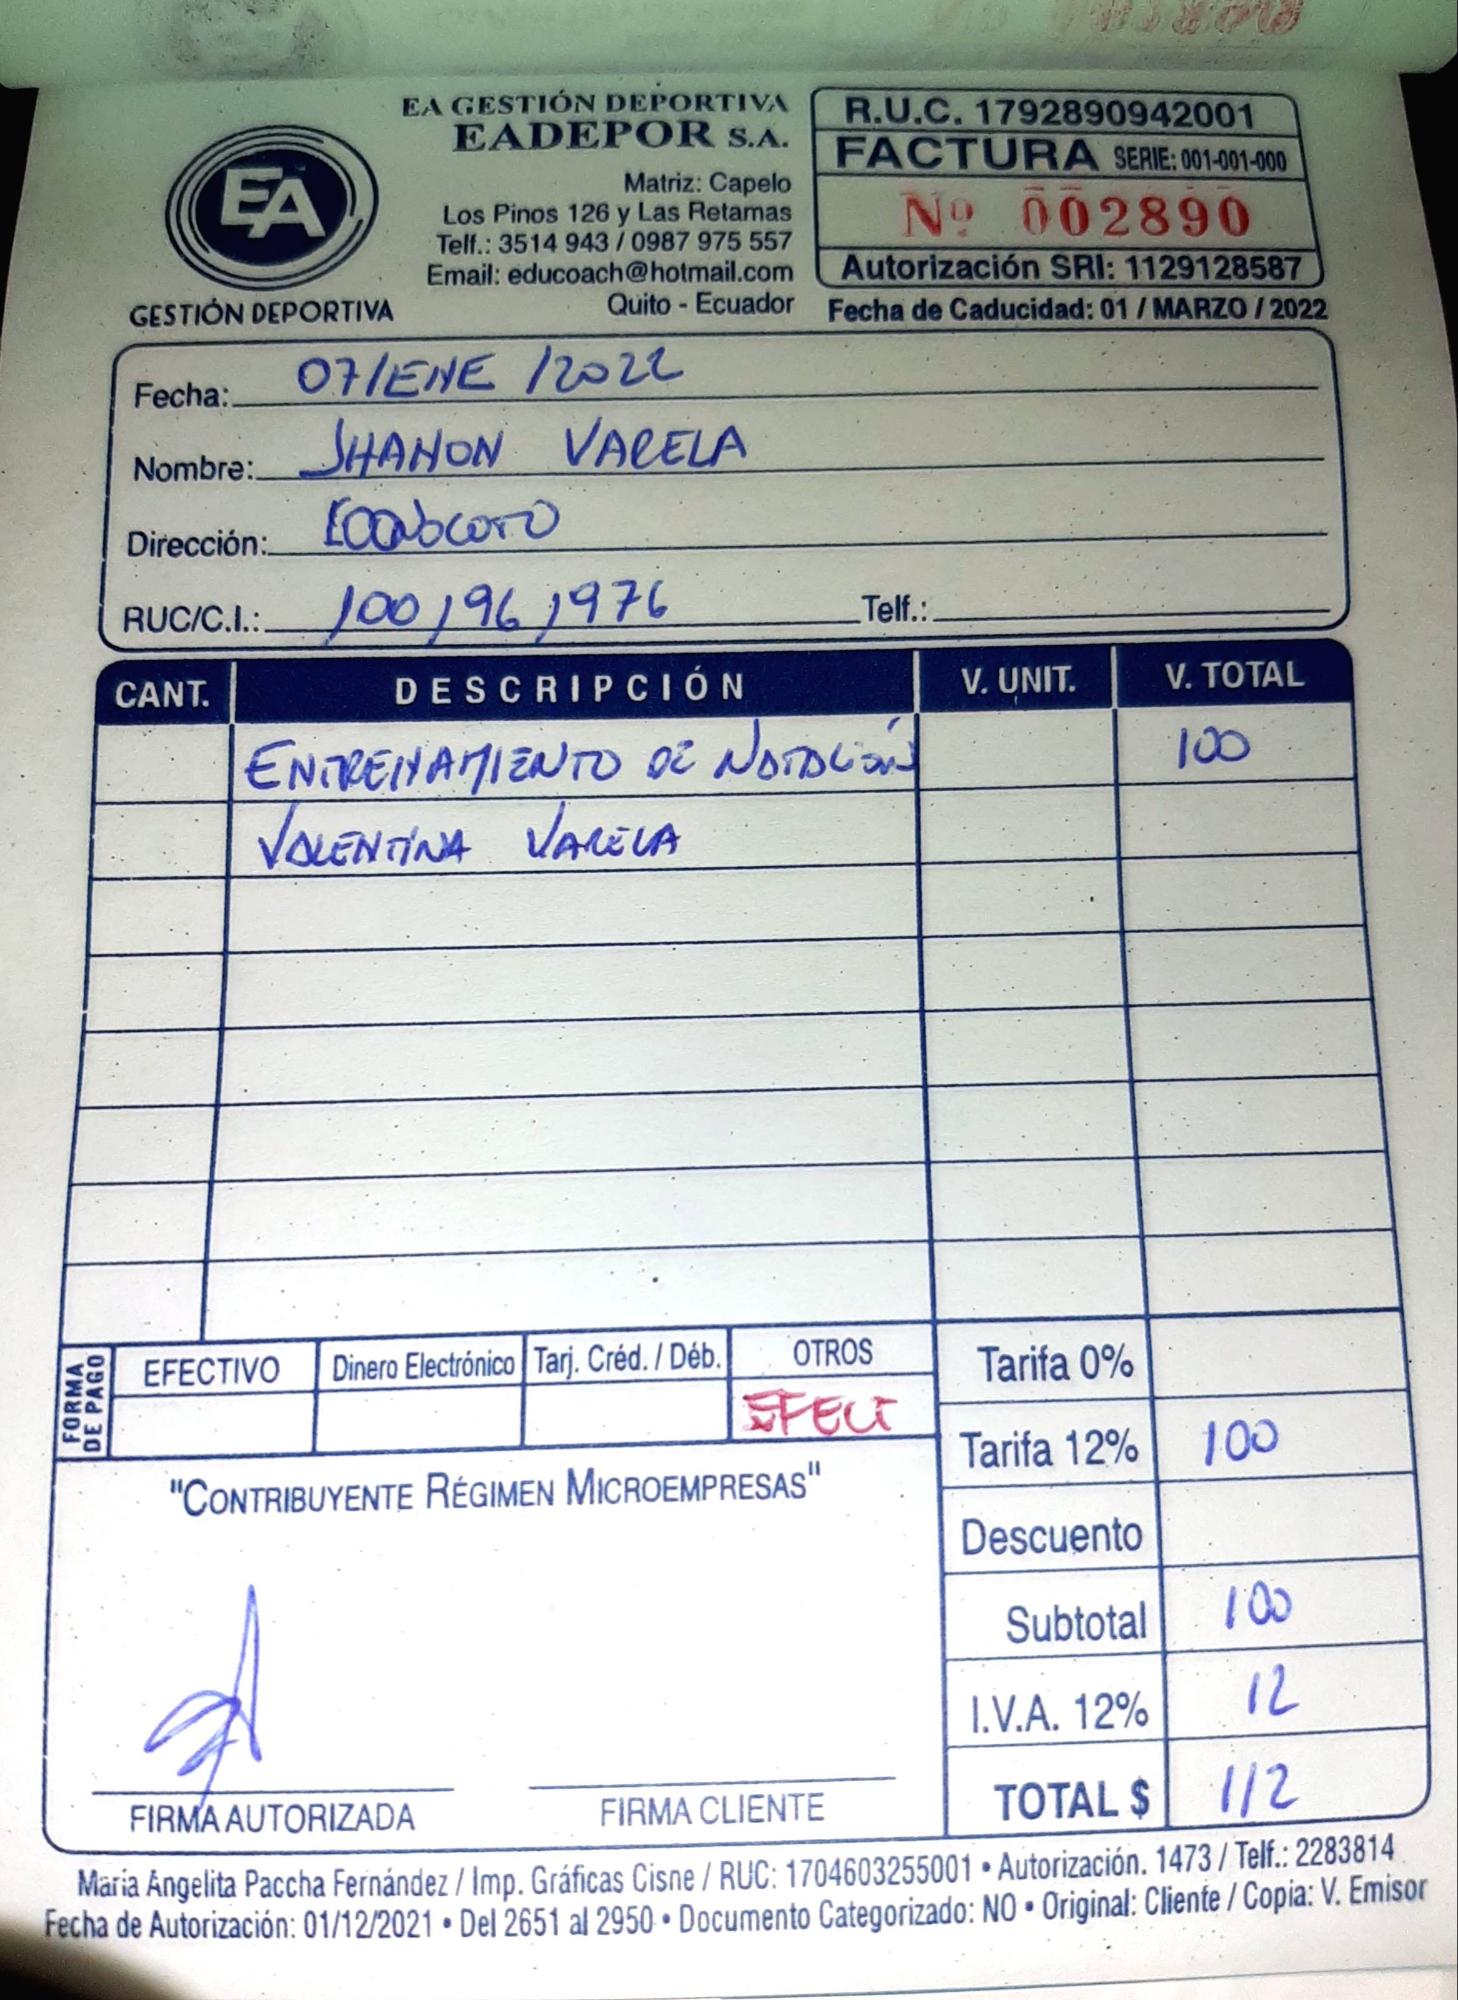 EA
GESTIÓN DEPORTIVA
EA GESTIÓN DEPORTIVA
EADEPOR S.A.
Matriz: Capelo
Los Pinos 126 y Las Retamas
Telf.: 3514 943 / 0987 975 557
Email: educoach@hotmail.com
Quito - Ecuador
R.U.C. 1792890942001
FACTURA SERIE: 001-001-000
Nº 002890
Autorización SRI: 1129128587
Fecha de Caducidad: 01 / MARZO / 2022
Fecha: 07/ENE /2022
Nombre: JHANON VARELA
Dirección:
RUC/C.I.: 1001961976 Telf.:
CANT. DESCRIPCIÓN V. UNIT. V. TOTAL
ENTRENAMIENTO DE NATACIÓN 100
VALENTINA VARELA
FORMA DE PAGO
EFECTIVO Dinero Electrónico Tarj. Créd. / Déb. OTROS
EFECT
Tarifa 0%
Tarifa 12% 100
Descuento
Subtotal 100
I.V.A. 12% 12
TOTAL $ 112
"CONTRIBUYENTE RÉGIMEN MICROEMPRESAS"
FIRMA AUTORIZADA FIRMA CLIENTE
María Angelita Paccha Fernández / Imp. Gráficas Cisne / RUC: 1704603255001 • Autorización. 1473 / Telf.: 2283814
Fecha de Autorización: 01/12/2021 • Del 2651 al 2950 • Documento Categorizado: NO • Original: Cliente / Copia: V. Emisor